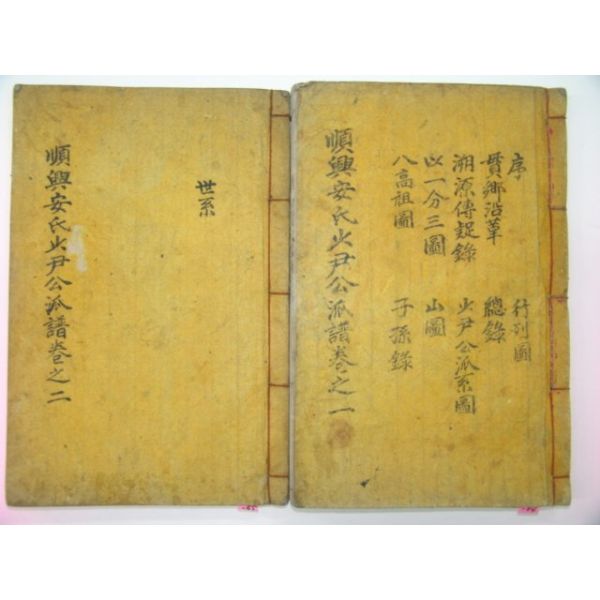 序 行列圖
貫鄕沿革 總錄
溯源傳疑錄 少尹公派系圖
以一分三圖 山圖
八高祖圖 子孫錄
順興安氏少尹公派譜卷之一
世系
順興安氏少尹公派譜卷之二